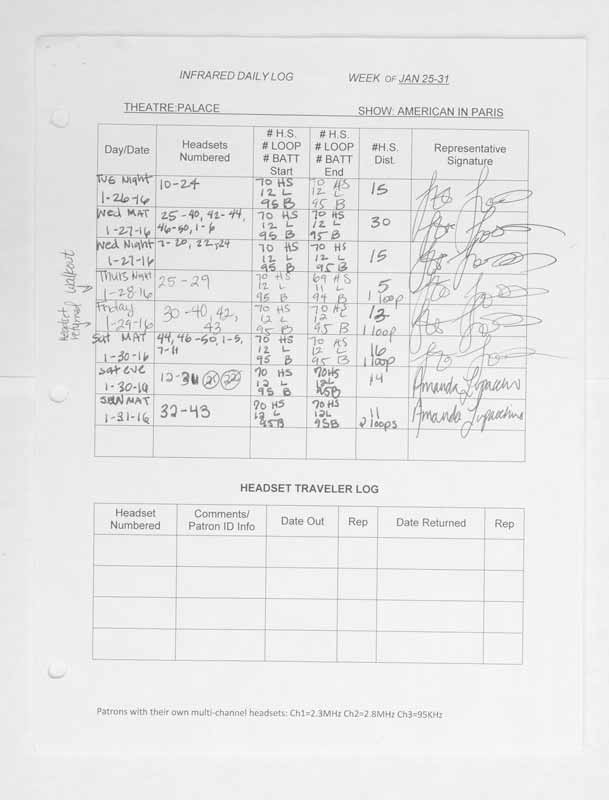 INFRARED DAILY LOG WEEK OF JAN 25-31
THEATRE: PALACE SHOW: AMERICAN IN PARIS
Day/Date Headsets Numbered # H.S. # LOOP # BATT Start # H.S. # LOOP # BATT End #H.S. Dist. Representative Signature
Tue Night 1-26-16 10-24 70 HS 12 L 95 B 70 HS 12 L 95 B 15
Wed MAT 1-27-16 25-40, 42-44, 46-50, 1-6 70 HS 12 L 95 B 70 HS 12 L 95 B 30
Wed Night 1-27-16 7-20, 22, 24 70 HS 12 L 95 B 70 HS 12 L 95 B 15
Thurs Night 1-28-16 25-29 70 HS 12 L 95 B 69 HS 11 L 94 B 5 1 loop
headset returned walkout
Friday 1-29-16 30-40, 42, 43 70 HS 12 L 95 B 70 HS 12 L 95 B 12 1 loop
Sat MAT 1-30-16 44, 46-50, 1-5, 7-11 70 HS 12 L 95 B 70 HS 12 L 95 B 16 1 loop
Sat eve 1-30-16 12-31 21 22 70 HS 12 L 95 B 70HS 12L 95B 14 Amanda
SUN MAT 1-31-16 32-43 70 HS 12 L 95B 70HS 12L 95B 11 2 loops Amanda
HEADSET TRAVELER LOG
Headset Numbered Comments/ Patron ID Info Date Out Rep Date Returned Rep
Patrons with their own multi-channel headsets: Ch1=2.3MHz Ch2=2.8MHz Ch3=95KHz